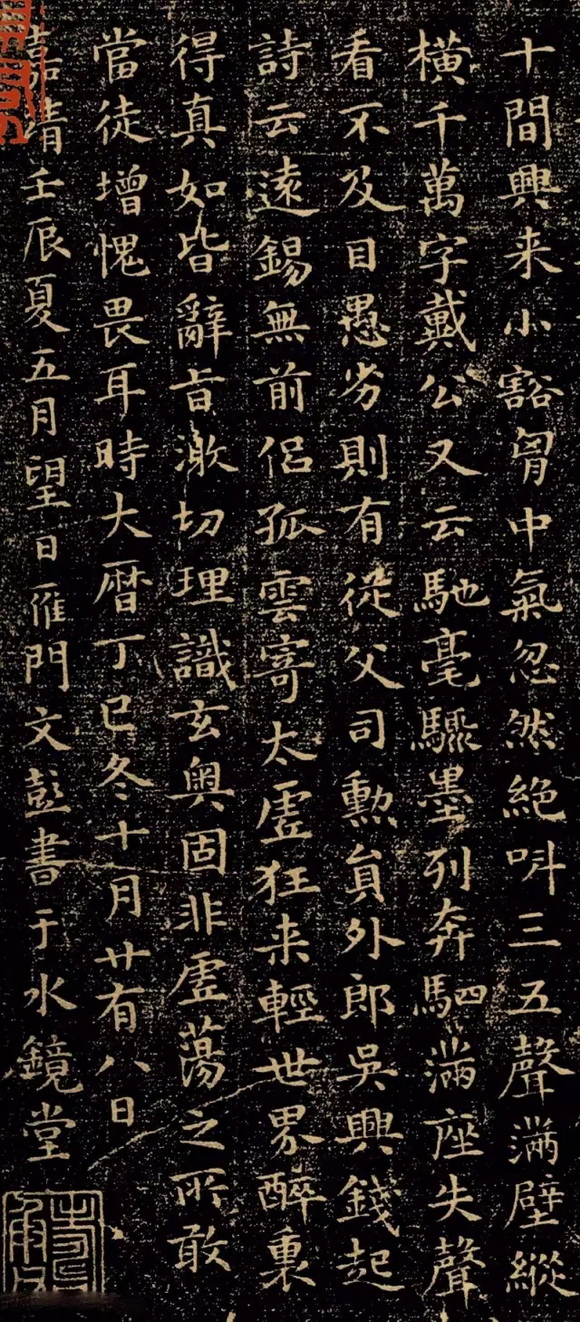 十間興来小豁胷中氣忽然絶叫三五聲滿壁縱
橫千萬字戴公又云馳毫驟墨列奔駟滿座失聲
看不及目愚劣則有從父司勳貟外郎吳興錢起
詩云遠錫無前侣孤雲寄太虛狂来輕世界醉裏
得真如皆辭旨激切理識玄奥固非虛蕩之所敢
當徒增愧畏耳時大曆丁巳冬十月廿有八日
嘉靖壬辰夏五月望日雁門文彭書于水鏡堂